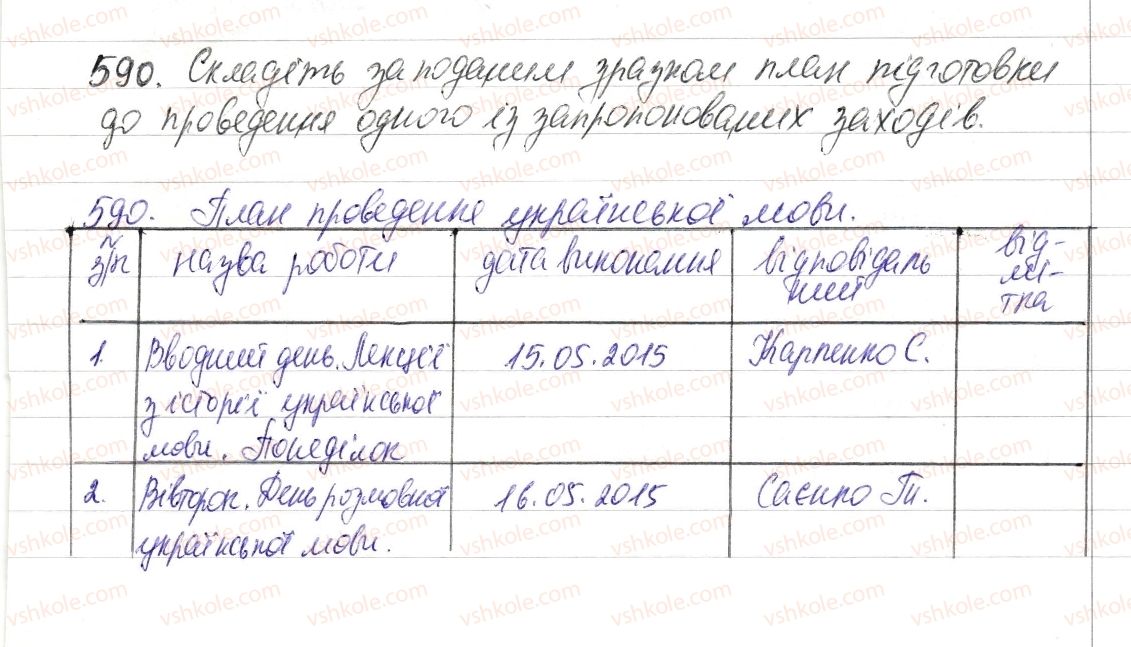 590. Складіть за поданим зразком план підготовки
до проведення одного із запропонованих заходів.
590. План проведення української мови.
№ з/п назва роботи дата виконання відповідальний відмітка
1. Вводний день. Лекції з історії української мови. Понеділок 15.05.2015 Карпенко С.
2. Вівторок. День розмовної української мови. 16.05.2015 Саєнко Т.
vshkole.com